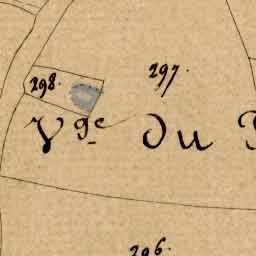 297.
298.
Vge du
296.